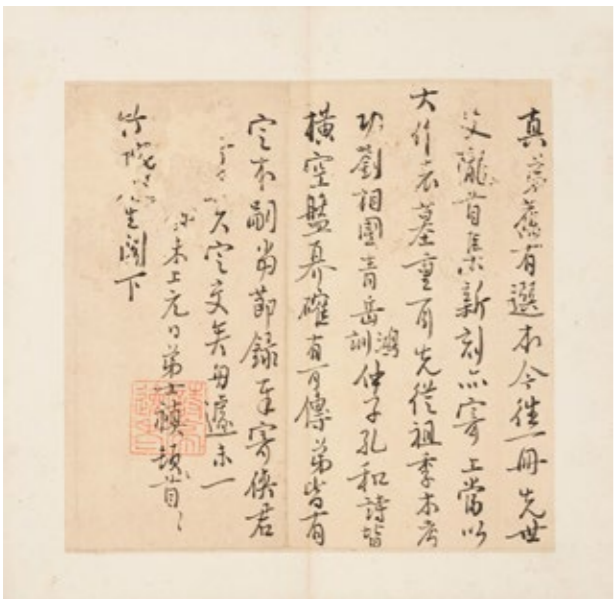 真藁舊有選本今往一冊先世
文隴首集新刻亦寄上當以
大作表墓重耳先從祖季木考
功劉相國青岳鴻訓仲子孔和詩皆
橫空盤奡確有可傳弟皆有
定本嗣當節錄奉寄俟君
定交矣勿遽示一
未上元日弟士禛頓首
竹垞先生閣下